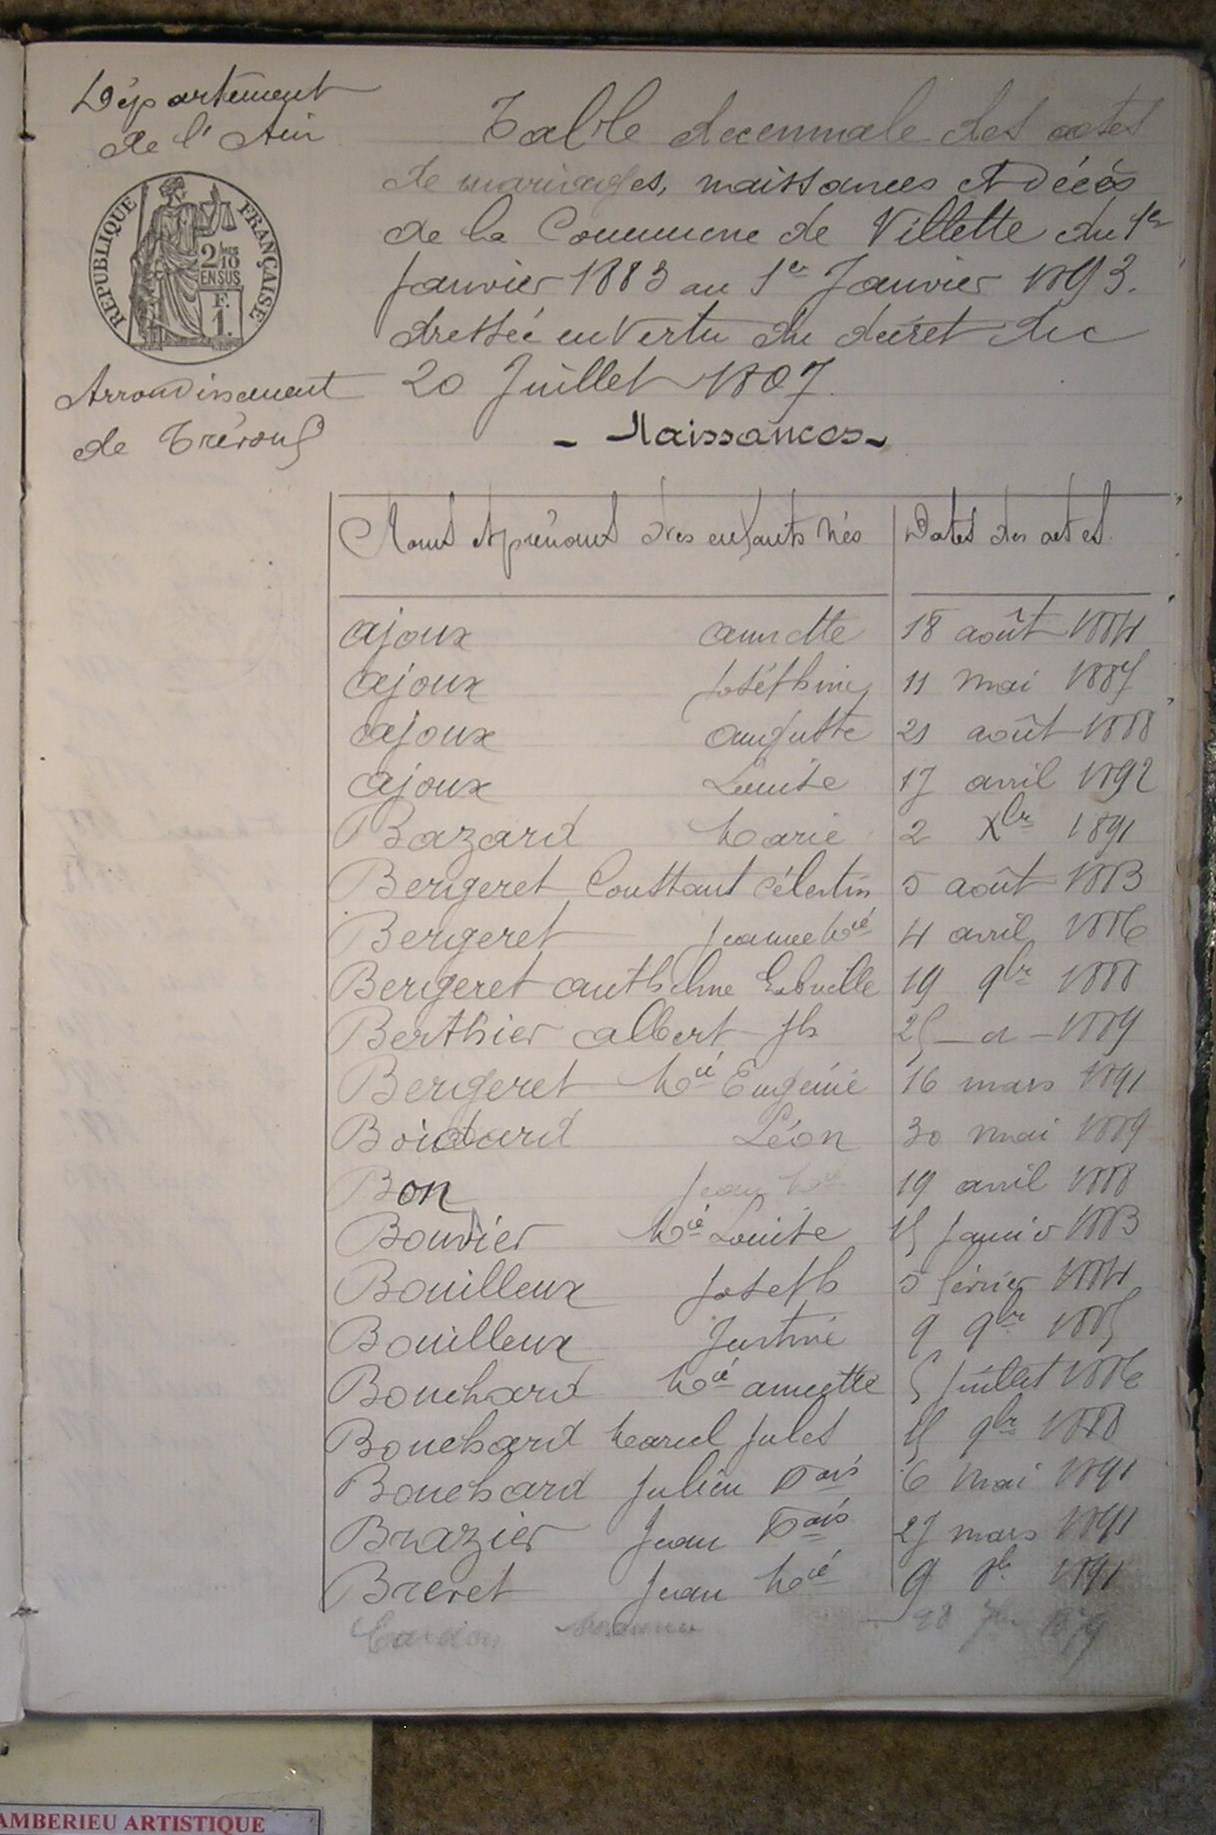 Département
de l'Ain
RÉPUBLIQUE FRANÇAISE
2/10
EN SUS
F.
1.
Arrondissement
de Trévoux
Table decennale des actes
de mariages, naissances et décès
de la Commune de Villette du 1er
Janvier 1883 au 1er Janvier 1893.
dressée en vertu du décret du
20 Juillet 1807.
- Naissances -
Noms et prénoms des enfants nés Dates des actes.
ajoux annette 18 août 1884
ajoux Joséphine 11 mai 1887
ajoux auguste 21 août 1888
ajoux Louise 17 avril 1892
Bazard Marie 2 Xbre 1891
Bergeret Constant Célestin 5 août 1883
Bergeret Jeanne Mie 4 avril 1886
Bergeret anthelme 19 9bre 1888
Berthier albert Jh 25 - d - 1889
Bergeret Mie Eugénie 16 mars 1891
Boidard Léon 30 mai 1889
Bon Jean Mie 19 avril 1888
Bouvier Mie Louise 15 Janvier 1883
Bouilleux Joseph 5 février 1884
Bouilleux Justine 9 9bre 1885
Bouchard Mie annette 5 Juillet 1886
Bouchard Marcel Jules 15 9bre 1888
Bouchard Julien Fois 6 Mai 1891
Brazier Jean Fois 27 mars 1891
Breret Jean Mie 9 1891
AMBERIEU ARTISTIQUE